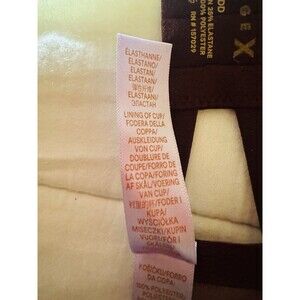 ELASTHANNE/
ELASTANO/
ELASTAN/
ELASTAAN/
ELASTAAN/
ЭЛАСТАН
LINING OF CUP/
FODERA DELLA
COPPA/
AUSKLEIDUNG
VON CUP/
DOUBLURE DE
COUPE/FORRO DE
LA COPA/FORING
AF SKÅL/VOERING
VAN CUP/
FODER I
KUPA/
WYŚCIÓŁKA
MISECZKI/KUPIN
VUORI/FÔR I
KOŠÍČKU/FORRO
DA COPA
100% POLYESTER
GE
X
OD
N 25% ELASTANE
100% POLYESTER
RN #157029